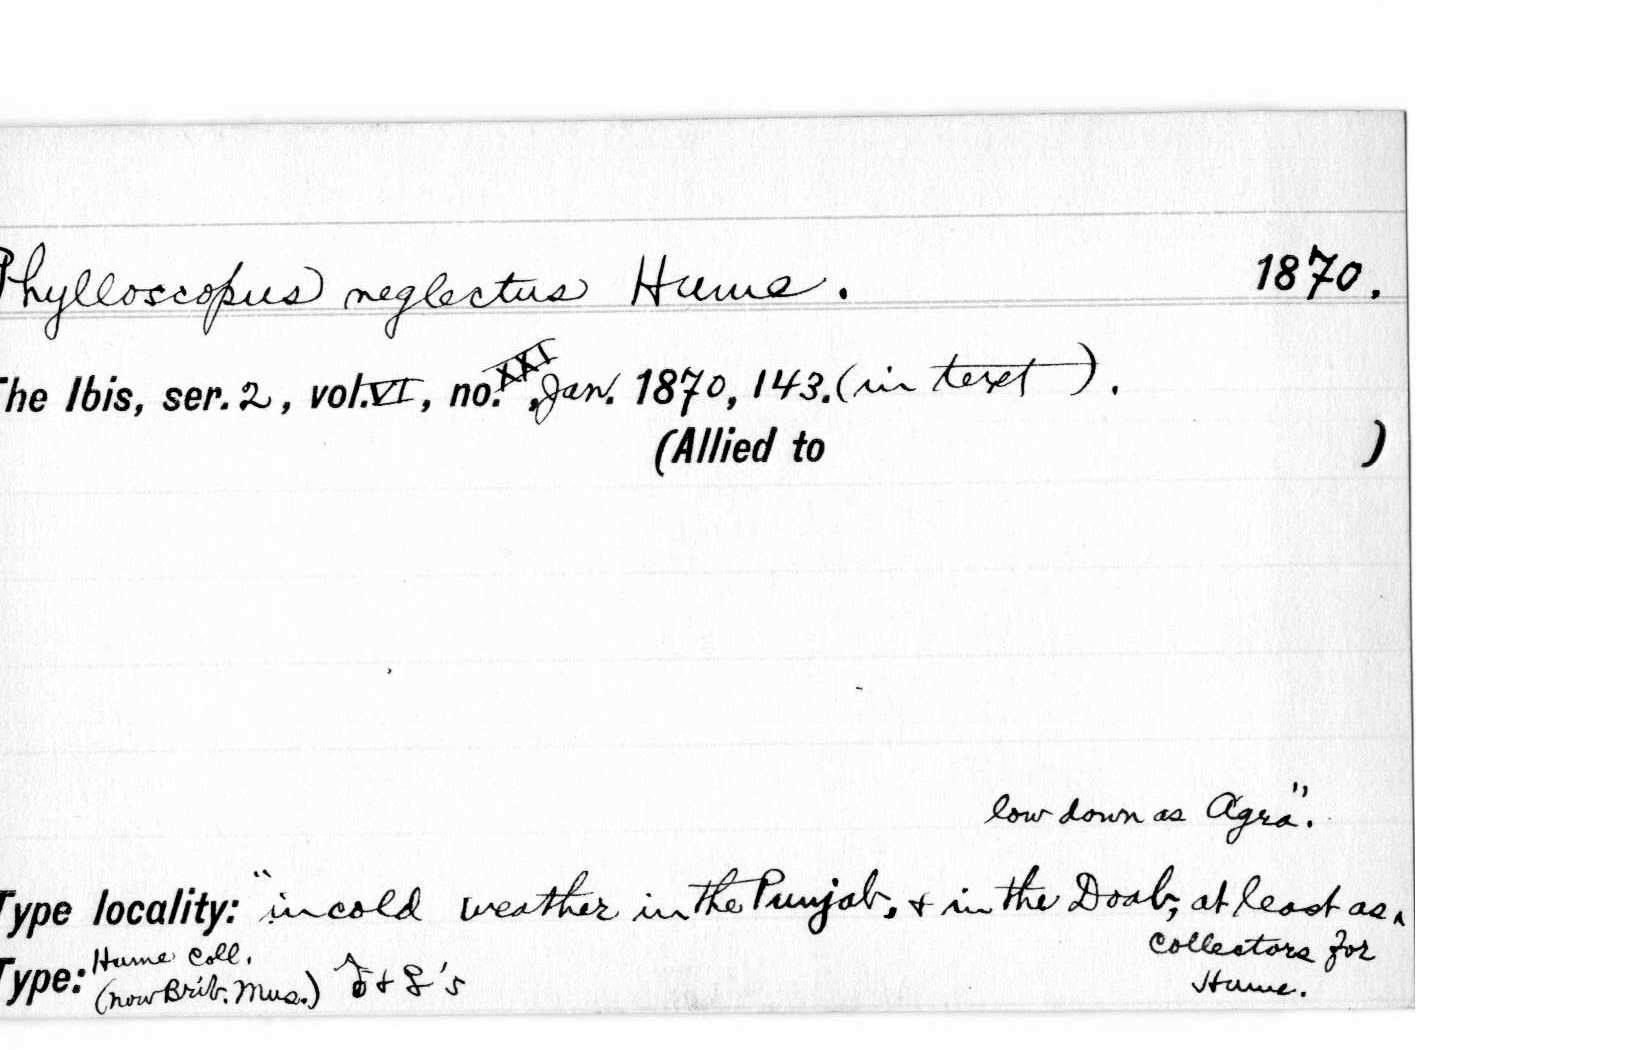 Phylloscopus neglectus Hume. 1870.
The Ibis, ser. 2, vol. VI, no. XXI, Jan. 1870, 143. (in text).
(Allied to )
low down as Agra".
Type locality: "in cold weather in the Punjab, & in the Doab, at least as ^
Type: Hume Coll. (now Brit. Mus.) ♂ & ♀'s
collectors for
Hume.